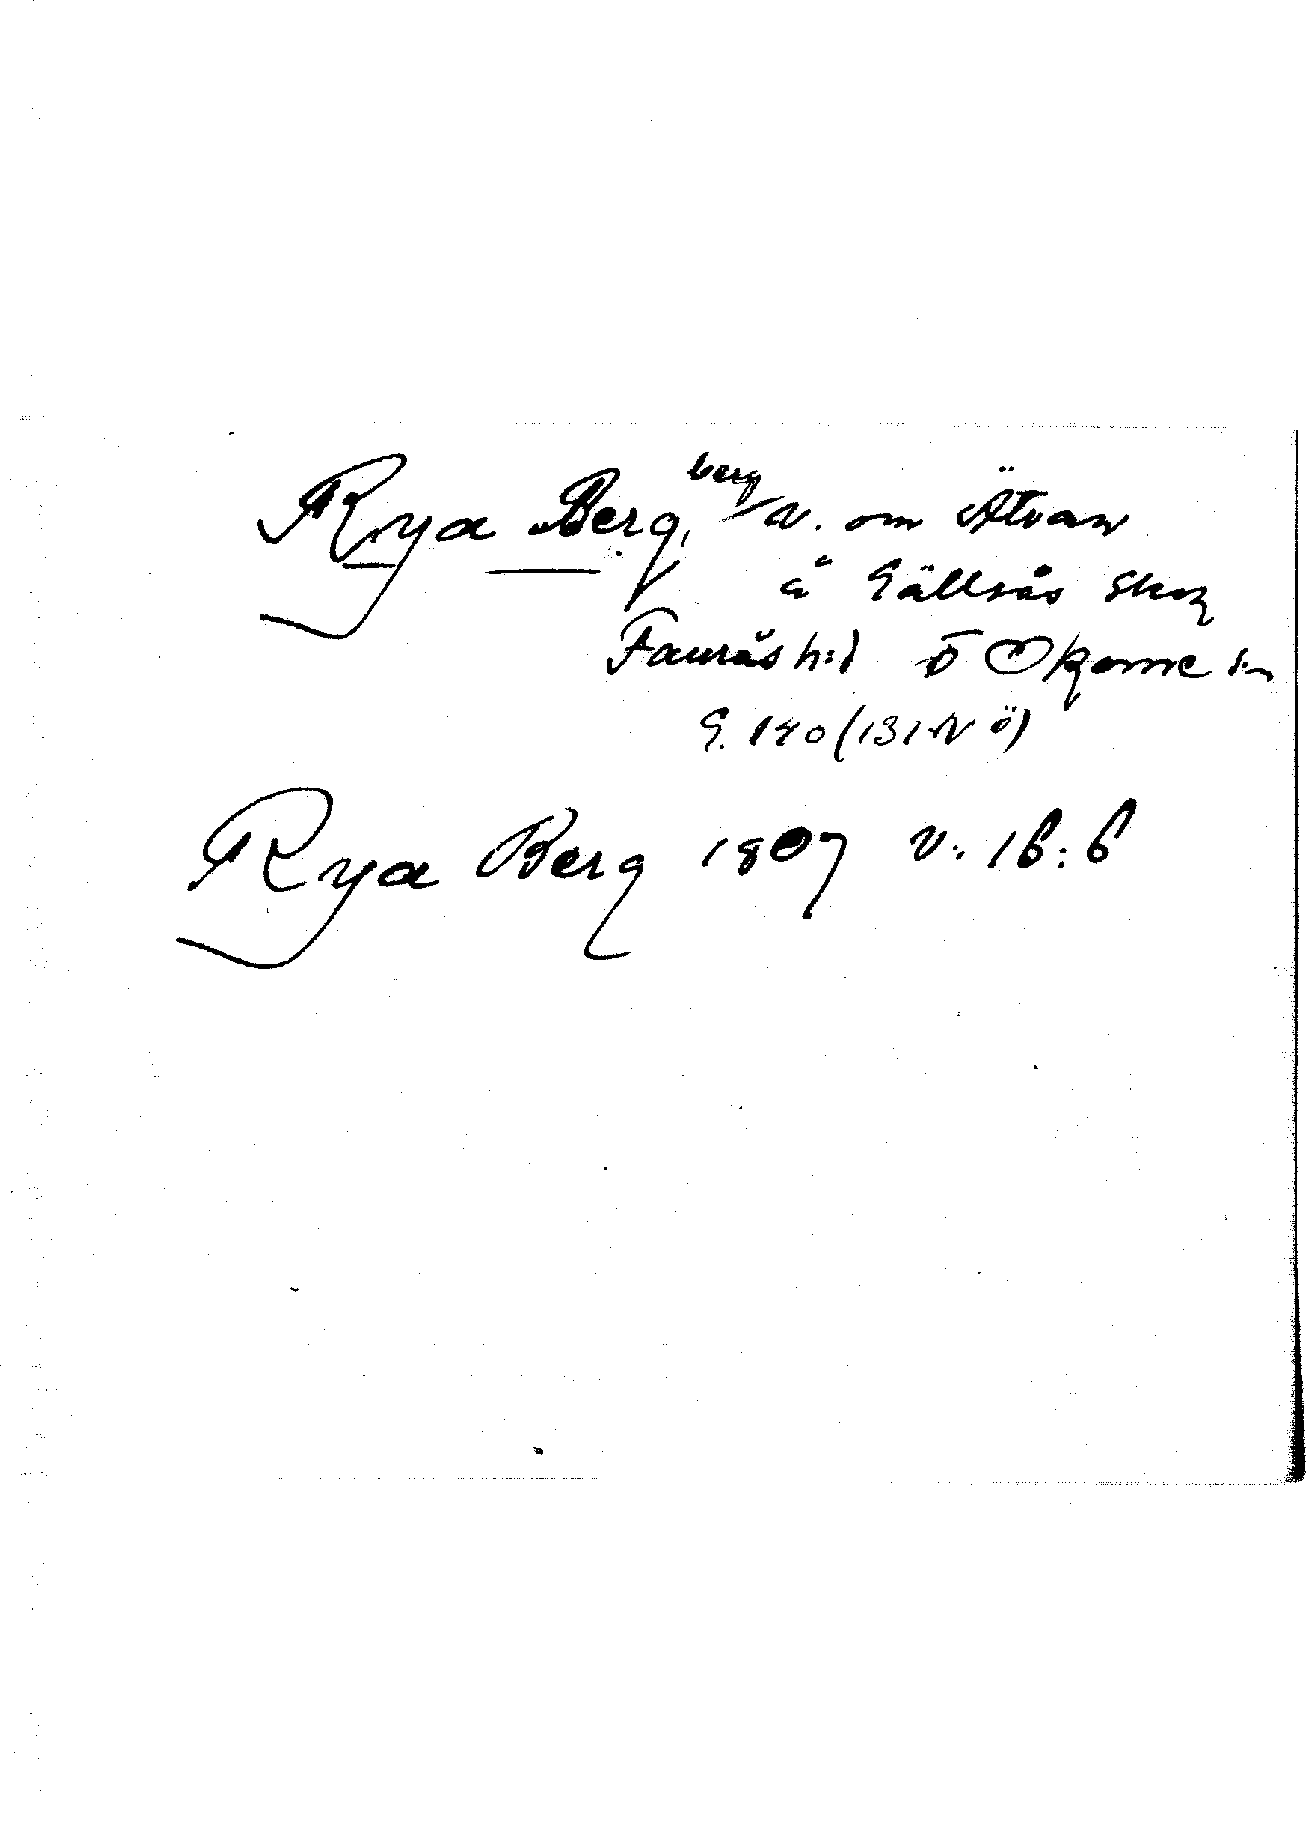 Rya Berg, berg v. om Ätran
å Gällsås skog
Faurås h:d Ö Okome sn
G. 140 (131 N ö)
Rya Berg 1807 v. 16:6